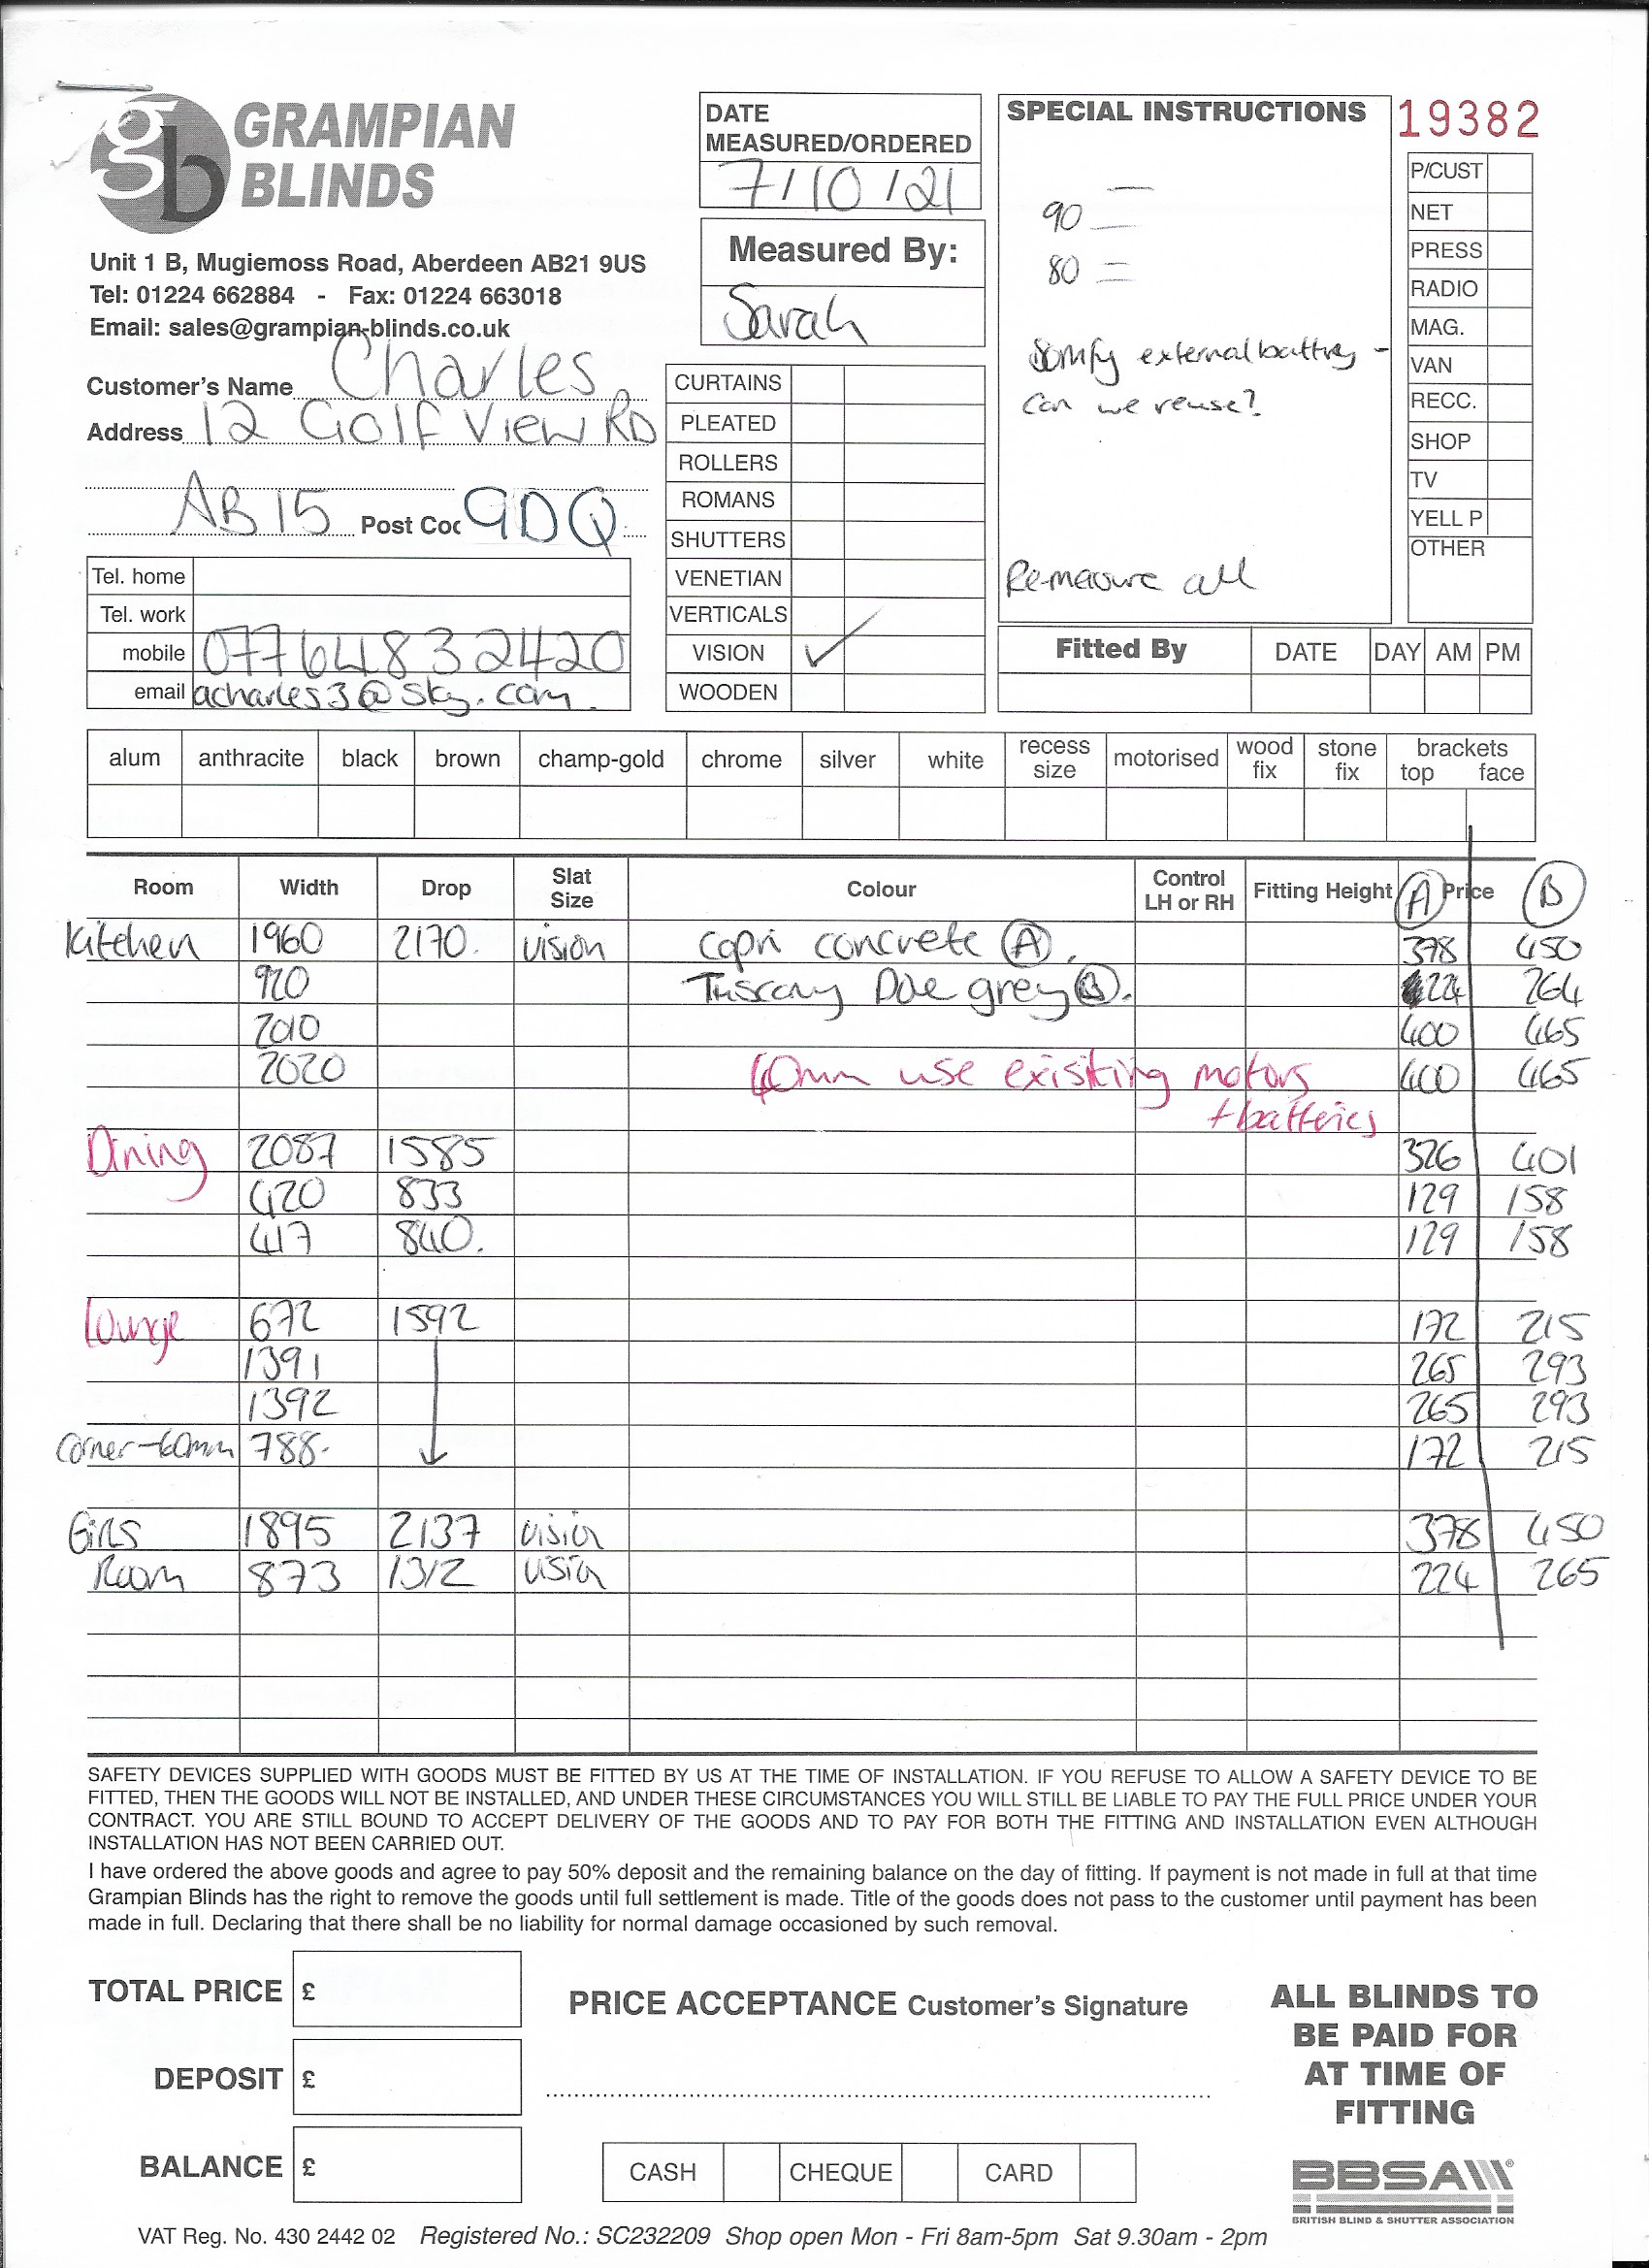 gb GRAMPIAN BLINDS
Unit 1 B, Mugiemoss Road, Aberdeen AB21 9US
Tel: 01224 662884 - Fax: 01224 663018
Email: sales@grampian-blinds.co.uk
Customer's Name Charles
Address 12 Golf View RD
AB15 Post Coc 9DQ
Tel. home
Tel. work
mobile 07764832420
email acharles3@sky.com.
DATE
MEASURED/ORDERED
7/10/21
Measured By:
Sarah
CURTAINS
PLEATED
ROLLERS
ROMANS
SHUTTERS
VENETIAN
VERTICALS
VISION ✓
WOODEN
SPECIAL INSTRUCTIONS
90
80
Somfy external battrey -
Can we reuse?
Remeasure all
19382
P/CUST
NET
PRESS
RADIO
MAG.
VAN
RECC.
SHOP
TV
YELL P
OTHER
Fitted By DATE DAY AM PM
alum anthracite black brown champ-gold chrome silver white recess size motorised wood fix stone fix brackets top face
Room Width Drop Slat Size Colour Control LH or RH Fitting Height A Price B
Kitchen 1960 2170. vision Capri concrete A. 378 450
920 Tuscany Dove grey B. 224 264
2010 400 465
2020 40mm use exisiting motors 400 465
+batteries
Dining 2087 1585 326 401
420 833 129 158
417 840. 129 158
Lounge 672 1592 172 215
1391 265 293
1392 265 293
Corner-60mm 788. 172 215
Girls 1895 2137 vision 378 450
Room 873 1312 vision 224 265
SAFETY DEVICES SUPPLIED WITH GOODS MUST BE FITTED BY US AT THE TIME OF INSTALLATION. IF YOU REFUSE TO ALLOW A SAFETY DEVICE TO BE
FITTED, THEN THE GOODS WILL NOT BE INSTALLED, AND UNDER THESE CIRCUMSTANCES YOU WILL STILL BE LIABLE TO PAY THE FULL PRICE UNDER YOUR
CONTRACT. YOU ARE STILL BOUND TO ACCEPT DELIVERY OF THE GOODS AND TO PAY FOR BOTH THE FITTING AND INSTALLATION EVEN ALTHOUGH
INSTALLATION HAS NOT BEEN CARRIED OUT.
I have ordered the above goods and agree to pay 50% deposit and the remaining balance on the day of fitting. If payment is not made in full at that time
Grampian Blinds has the right to remove the goods until full settlement is made. Title of the goods does not pass to the customer until payment has been
made in full. Declaring that there shall be no liability for normal damage occasioned by such removal.
TOTAL PRICE £
DEPOSIT £
BALANCE £
PRICE ACCEPTANCE Customer's Signature
CASH CHEQUE CARD
ALL BLINDS TO
BE PAID FOR
AT TIME OF
FITTING
BBSA
BRITISH BLIND & SHUTTER ASSOCIATION
VAT Reg. No. 430 2442 02 Registered No.: SC232209 Shop open Mon - Fri 8am-5pm Sat 9.30am - 2pm